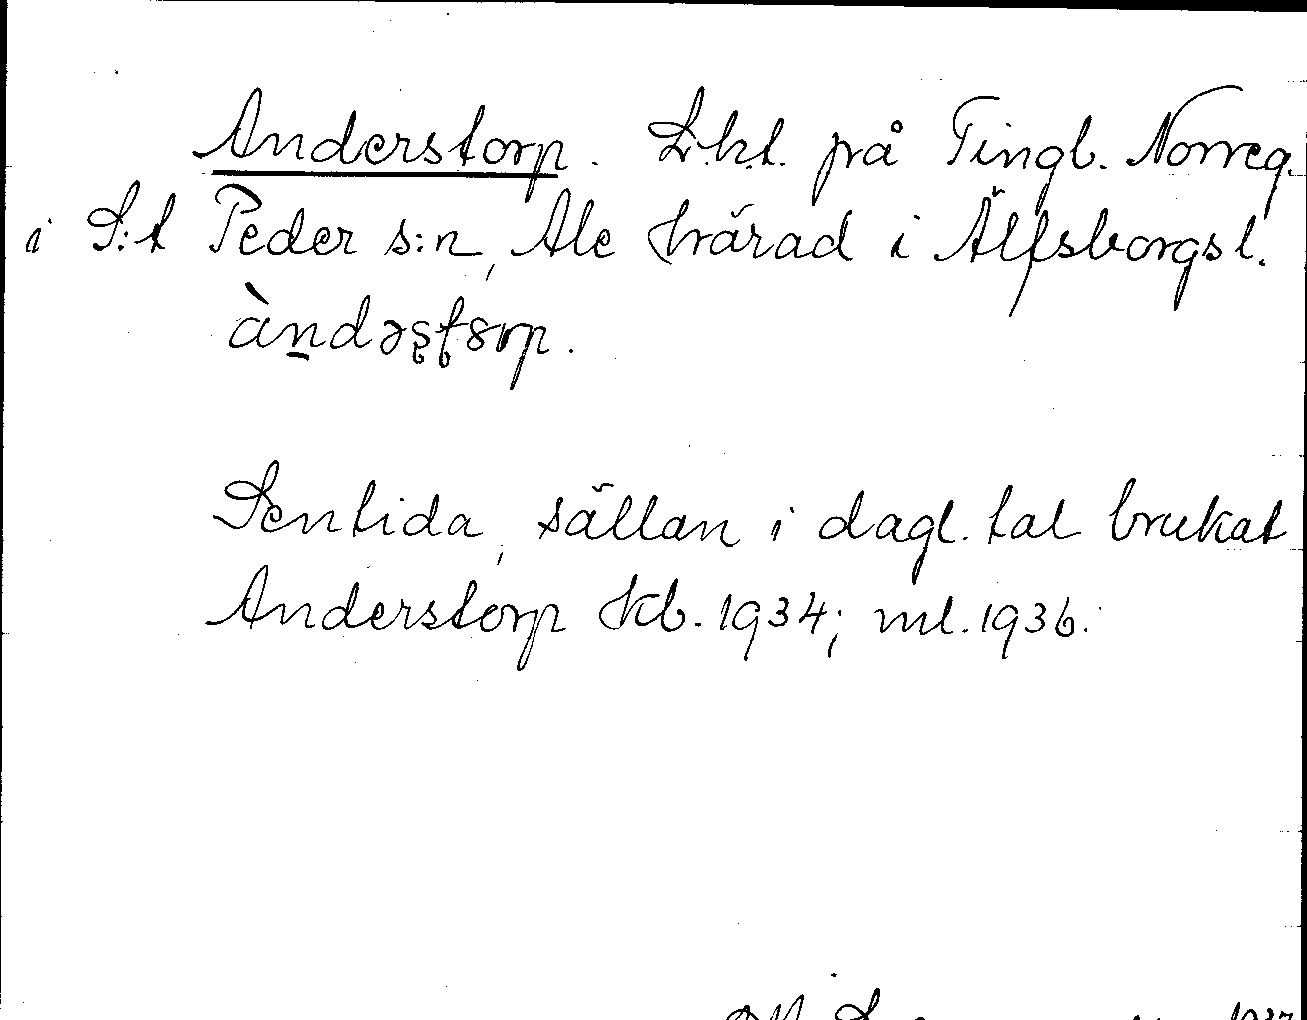 Anderstorp. Lht. på Tingb. Norreg.
i S:t Peder s:n, Ale härad i Älfsborgs l.
àndəsƫorp.
Sentida, sällan i dagl. tal brukat
Anderstorp Kb. 1934; ml. 1936.
1937